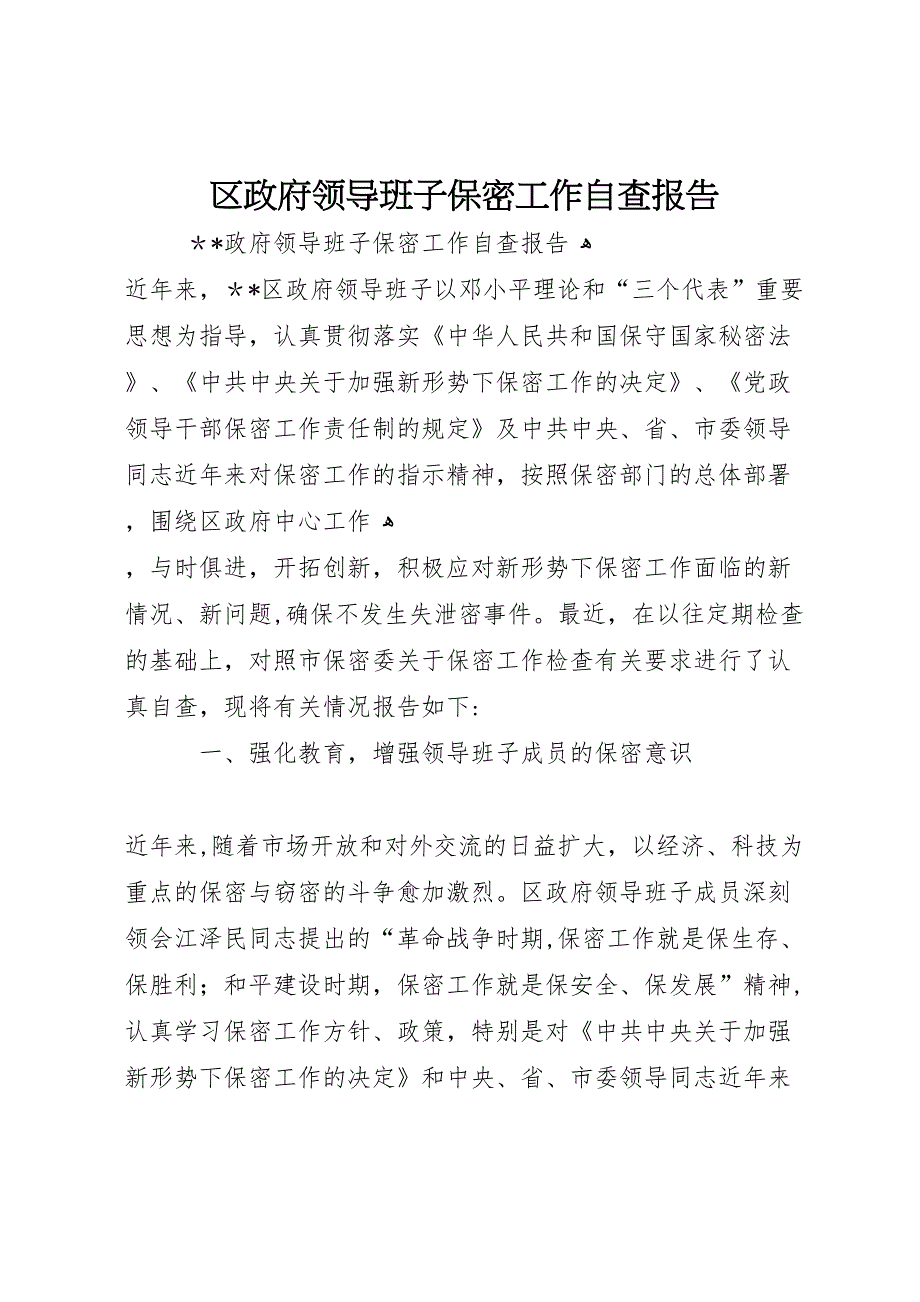 区政府领导班子保密工作自查报告
**政府领导班子保密工作自查报告ﻫ
近年来，**区政府领导班子以邓小平理论和“三个代表”重要
思想为指导，认真贯彻落实《中华人民共和国保守国家秘密法
》、《中共中央关于加强新形势下保密工作的决定》、《党政
领导干部保密工作责任制的规定》及中共中央、省、市委领导
同志近年来对保密工作的指示精神，按照保密部门的总体部署
，围绕区政府中心工作ﻫ
，与时俱进，开拓创新，积极应对新形势下保密工作面临的新
情况、新问题,确保不发生失泄密事件。最近，在以往定期检查
的基础上，对照市保密委关于保密工作检查有关要求进行了认
真自查，现将有关情况报告如下:
一、强化教育，增强领导班子成员的保密意识
近年来,随着市场开放和对外交流的日益扩大，以经济、科技为
重点的保密与窃密的斗争愈加激烈。区政府领导班子成员深刻
领会江泽民同志提出的“革命战争时期,保密工作就是保生存、
保胜利；和平建设时期，保密工作就是保安全、保发展”精神,
认真学习保密工作方针、政策，特别是对《中共中央关于加强
新形势下保密工作的决定》和中央、省、市委领导同志近年来